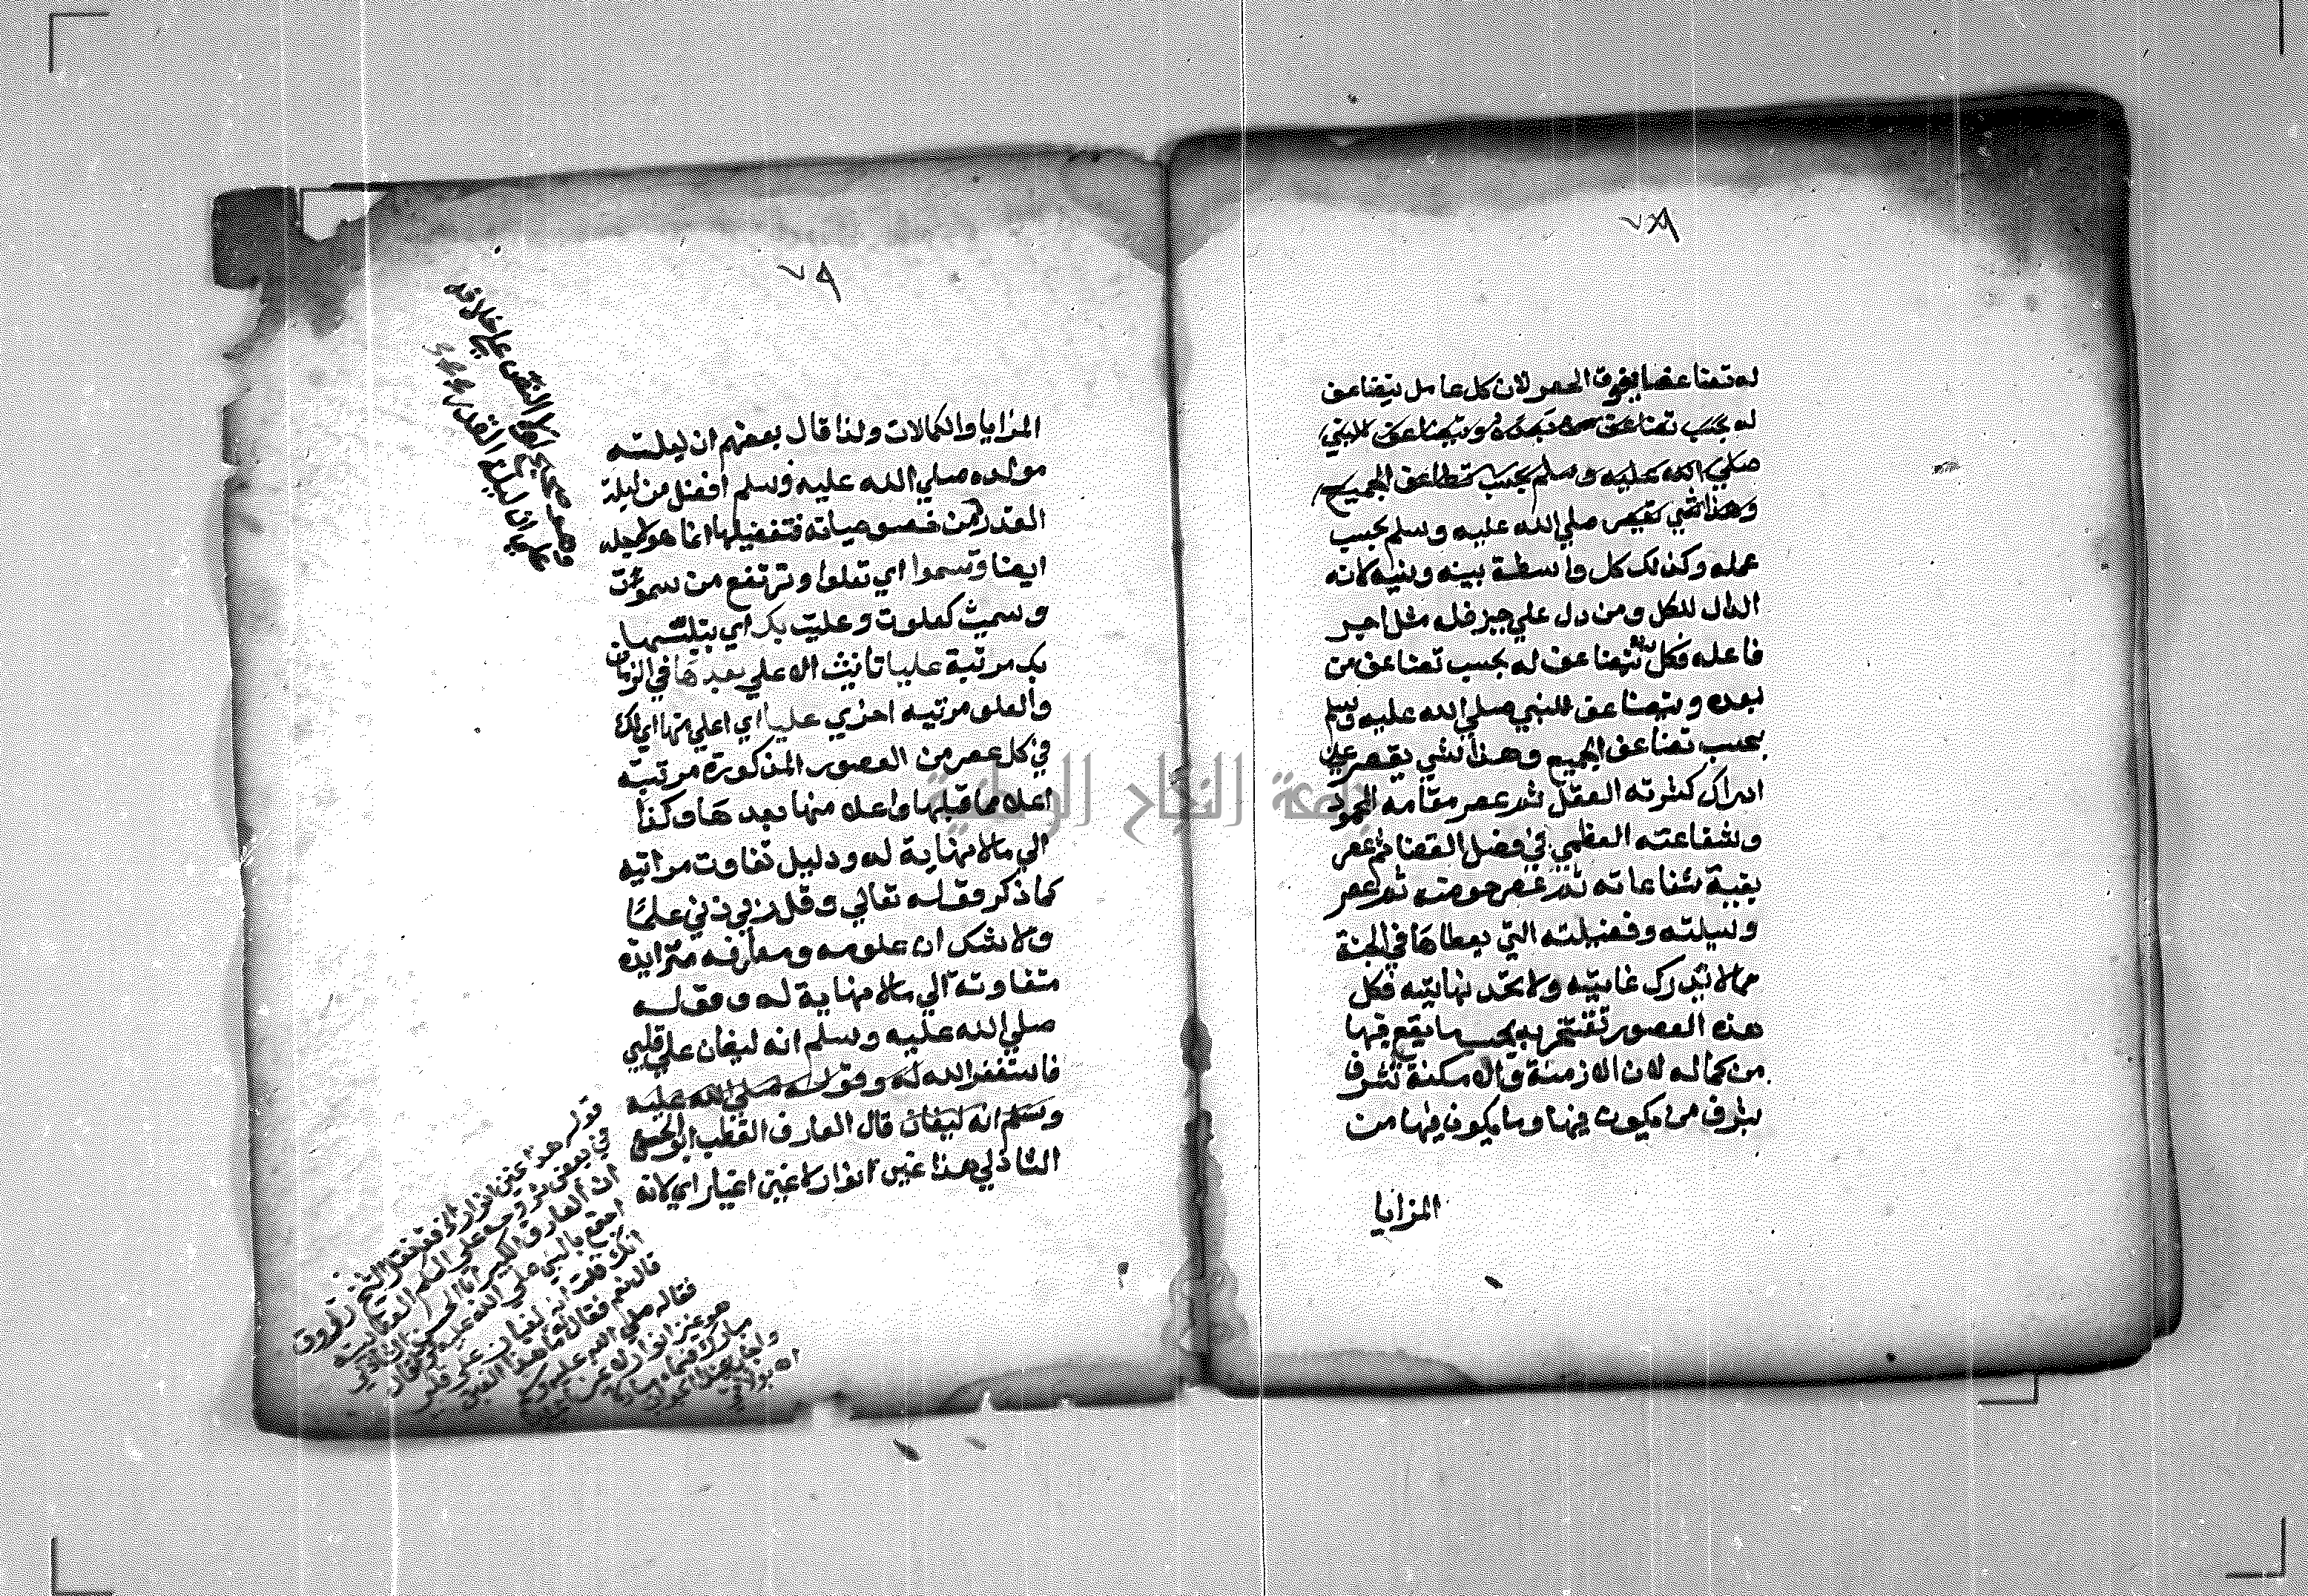 ٧٨
له تضاعفا يفوق الحصر لان كل عامل يتضاعف
له بحسب تضاعف من بعده ويتضاعف للنبي
صلي الله عليه وسلم بحسب تضاعف الجميع
وهذا شي صلي الله عليه وسلم بحسب
عمله وكذلك كل واسطة بينه وبينه لانه
الدال للكل ومن دل علي خير فله مثل اجر
فاعله فكل يتضاعف له بحسب تضاعف من
بعده ويتضاعف للنبي صلي الله عليه وسلم
بحسب تضاعف الجميع وهذا شي يقصر عن
ادراك كثرته العقل ثم عصر مقامه المحمود
وشفاعته العظمي في فصل القضا ثم عصر
بقية شفاعاته ثم عصر حوضه ثم عصر
وسيلته وفضيلته التي يعطاها في الجنة
مما لا تدرك غايته ولا تحد نهايته فكل
هذه العصور تفتخر به بحسب ما يقع فيها
من كماله لان الازمنة والامكنة تشرف
بشرف من يكون فيها وما يكون فيها من
المزايا
٧٩
المزايا والكمالات ولذا قال بعضهم ان ليلته
مولده صلي الله عليه وسلم افضل من ليلة
القدر من خصوصياته فتفضيلها انما هو لاجله
ايضا وتسموا اي تعلوا وترتفع من سموت
وسميت كعلوت وعليت بك اي بتلبسها
بك مرتبة عليا تانيث الاعلي بعدها في الزمان
والعلو مرتبه اخري عليا اي اعلي منها اي لك
في كل عصر من العصور المذكورة مرتبة
اعلا مما قبلها واعلا منها بعدها وكذا
الي مالا نهاية له ودليل تفاوت مراتبه
كما ذكر قوله تعالي وقل رب زدني علما
ولا شك ان علومه ومعارفه متزايدة
متفاوتة الي مالا نهاية له وقوله
صلي الله عليه وسلم انه ليغان علي قلبي
فاستغفر الله له وقوله صلي الله عليه
وسلم انه ليغان قال العارف القطب ابو الحسن
الشاذلي هذا غين انوار لا غين اغيار اي لانه
علي خلافه
ان ليلة القدر
قوله هذا غين انوار الخ فقد نقل الشيخ زروق
في بعض شروحه علي الحكم العطائية
ان العارف الكبير ابا الحسن الشاذلي
اجتمع بالنبي صلي الله عليه وسلم فقال
انك قلت انه ليغان علي قلبي
قال نعم فقال له ما هذا الغين
فقال صلي الله عليه وسلم
هو غين انوار لا غين
جامعة النجاح الوطنية